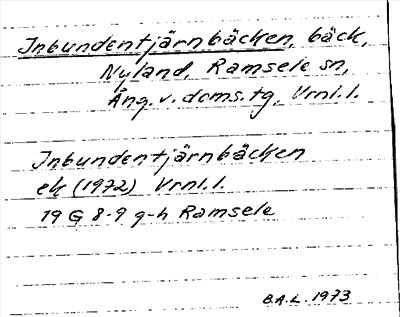 Inbundentjärnbäcken, bäck,
Nyland, Ramsele sn,
Ång. v. doms. tg, Vrnl. l.
Inbundentjärnbäcken
ek (1972) Vrnl. l.
19 G 8-9 g-h Ramsele
B.A.L. 1973